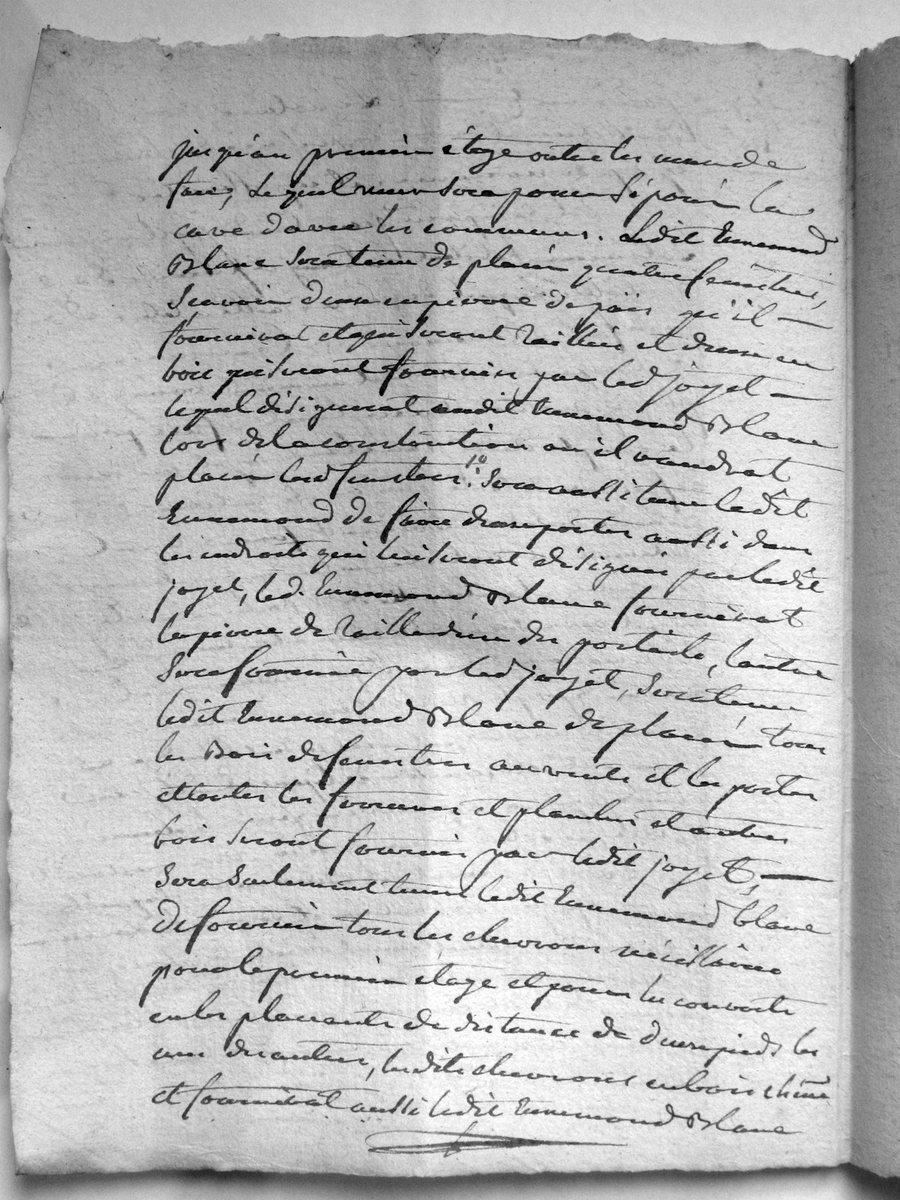 jusqu'au premier étage outre les murs de
face, lequel mur sera pour séparer la
cave d'avec les communs. Ledit Ennemond
Blanc sera tenu de placer quatre fenetres,
scavoir deux en pierre de jais qu'il —
fournirat et qui seront taillés et deux en
bois qui seront fournies par led joyet —
lequel désignerat audit Ennemond Blanc
lors de la construction ou il vaudrat
placer lesd fenetres. Sera aussi tenu ledit
Ennemond de faire deux portes aussi dans
les endroits qui lui seront désignés par ledit
joyet, led. Ennemond Blanc fournirat
la pierre de taille d'une des portes, l'autre
sera fournie par led joyet, sera tenu
ledit Ennemond Blanc de placer tous
les Bois de fenetres auvents et les portes
et toutes les ferrures et planches et autres
bois seront fournis par ledit joyet, —
sera seulement tenu ledit Ennemond blanc
de fournir tous les chevrons nécessaires
pour le premier étage et pour les couverts
en les placants de distance de deux pieds les
uns des autres, lesdits chevrons en bois chêne
et fournirat aussi ledit Ennemond Blanc